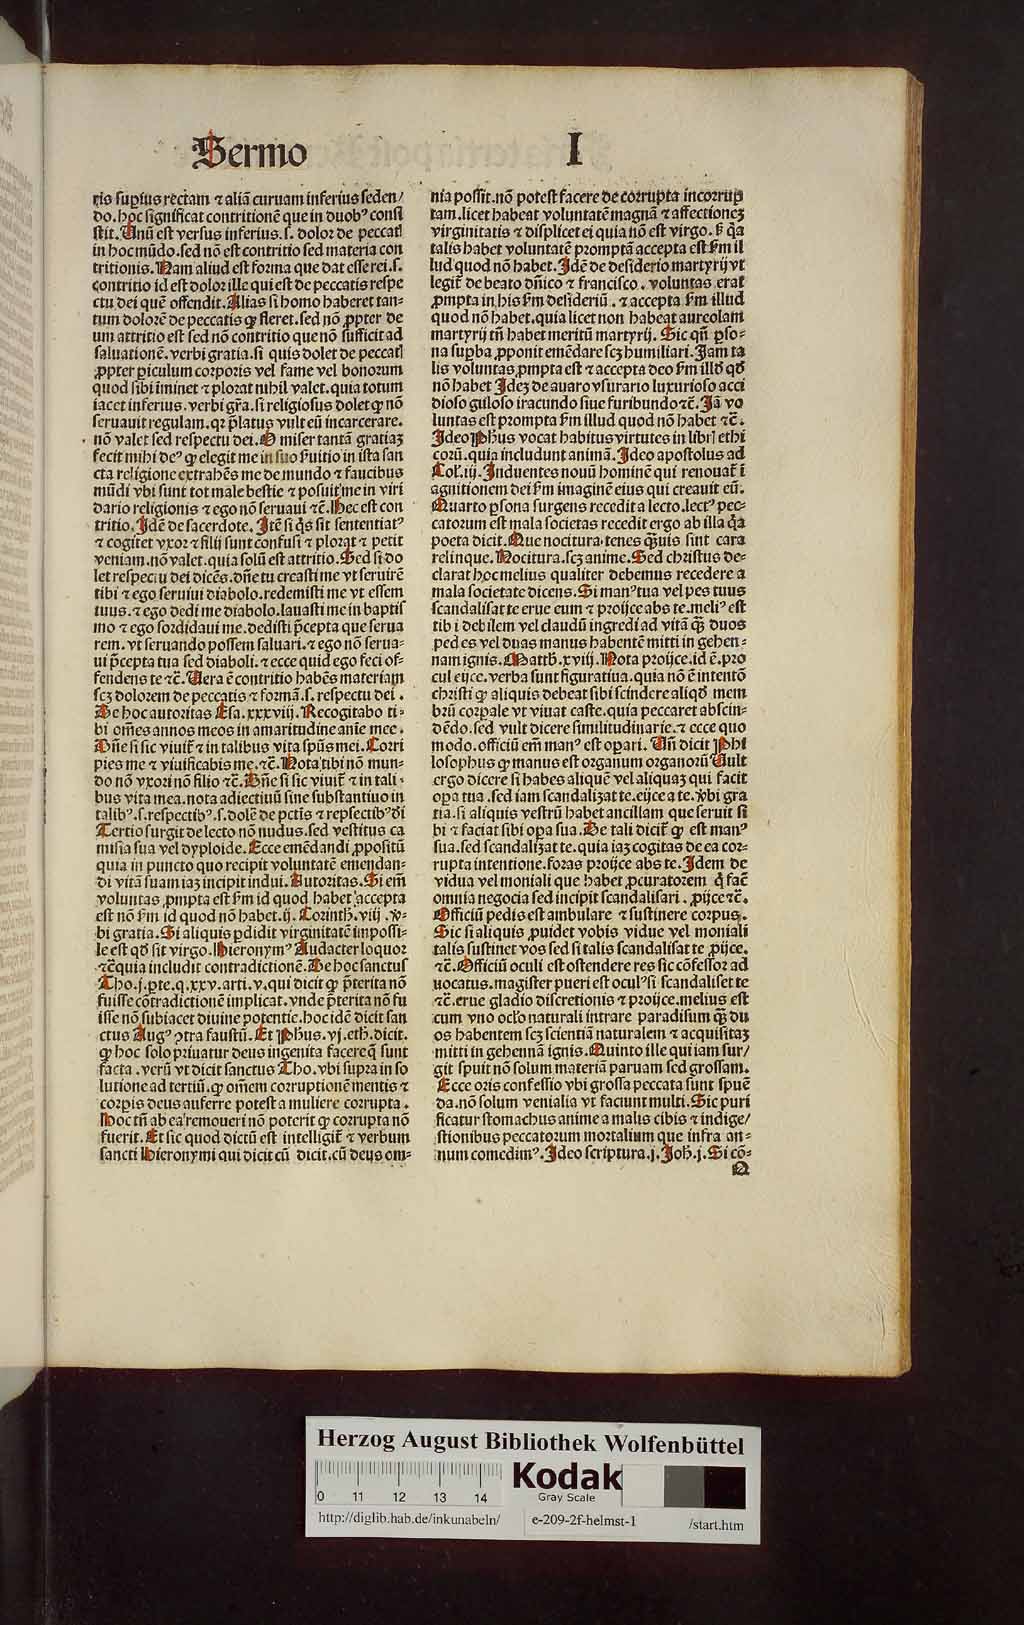 Sermo I
ris supius rectam ⁊ aliā curuam inferius seden/
do. hoc significat contritionē que in duobꝰ consi
stit. Unū est versus inferius. s. dolor de peccatꝭ
in hoc mūdo. sed nō est contritio sed materia con
tritionis. Nam aliud est forma que dat esse rei. s.
contritio id est dolor ille qui est de peccatis respe
ctu dei quē offendit. Alias si homo haberet tan-
tum dolorē de peccatis ꝙ fleret. sed nō ꝓpter de
um attritio est sed nō contritio que nō sufficit ad
saluationē. verbi gratia. si quis dolet de peccatꝭ
ꝓpter ꝑiculum corporis vel fame vel bonorum
quod sibi īminet ⁊ plorat nihil valet. quia totum
iacet inferius. verbi gr̄a. si religiosus dolet ꝙ nō
seruauit regulam. qꝛ p̄latus vult eū incarcerare.
nō valet sed respectu dei. O miser tantā gratiaꝫ
fecit mihi deꝰ ꝙ elegit me in suo ẜuitio in ista san
cta religione extrahēs me de mundo ⁊ faucibus
mūdi vbi sunt tot male bestie ⁊ posuit me in viri
dario religionis ⁊ ego nō seruaui ⁊c̄. Hec est con
tritio. Idē de sacerdote. Itē si q̇s sit sententiatꝰ
⁊ cogitet vxor ⁊ filij sunt confusi ⁊ plorat ⁊ petit
veniam. nō valet. quia solū est attritio. Sed si do
let respectu dei dicēs. dn̄e tu creasti me vt seruirē
tibi ⁊ ego seruiui diabolo. redemisti me vt essem
tuus. ⁊ ego dedi me diabolo. lauasti me in baptis
mo ⁊ ego sordidaui me. dedisti p̄cepta que serua
rem. vt seruando possem saluari. ⁊ ego nō serua-
ui p̄cepta tua sed diaboli. ⁊ ecce quid ego feci of-
fendens te ⁊c̄. Uera ē contritio habēs materiam
scꝫ dolorem de peccatis ⁊ formā. s. respectu dei.
De hoc autoritas Esa. xxxviij. Recogitabo ti-
bi om̄es annos meos in amaritudine anīe mee.
Dn̄e si sic viuit̄ ⁊ in talibus vita spūs mei. Corri
pies me ⁊ viuificabis me. ⁊c̄. Nota tibi nō mun-
do nō vxori nō filio ⁊c̄. Dn̄e si sic viuit̄ ⁊ in tali-
bus vita mea. nota adiectiuū sine substantiuo in
talibꝰ. s. respectibꝰ. s. dolē de pctīs ⁊ repsectibꝰ di
Tertio surgit de lecto nō nudus. sed vestitus ca
misia sua vel dyploide. Ecce emēdandi ꝓpositū
quia in puncto quo recipit voluntatē emendan-
di vitā suam iaꝫ incipit indui. Autoritas. Si em̄
voluntas ꝓmpta est ẜm id quod habet accepta
est nō ẜm id quod nō habet. ij. Corinth. viij. ꝟ-
bi gratia. Si aliquis ꝑdidit virginitatē impossi-
le est qd̄ sit virgo. Hieronymꝰ Audacter loquor
⁊c̄ quia includit contradictionē. De hoc sanctus
Tho. j. ꝑte. q. xxv. arti. v. qui dicit ꝙ p̄terita nō
fuisse cōtradictionē implicat. vnde p̄terita nō fu
isse nō subiacet diuine potentie. hoc idē dicit san
ctus Augꝰ ꝯtra faustū. Et Phus. vj. eth. dicit.
ꝙ hoc solo priuatur deus ingenita facereq̄ sunt
facta. verū vt dicit sanctus Tho. vbi supra in so
lutione ad tertiū. ꝙ om̄em corruptionē mentis ⁊
corꝑis deus auferre potest a muliere corrupta.
Hoc tn̄ ab ea remoueri nō poterit ꝙ corrupta nō
fuerit. Et sic quod dictū est intelligit̄ ⁊ verbum
sancti Hieronymi qui dicit cū dicit. cū deus om-
nia possit. nō potest facere de corrupta incorrup
tam. licet habeat voluntatē magnā ⁊ affectioneꝫ
virginitatis ⁊ displicet ei quia nō est virgo. ẜ q̄a
talis habet voluntatē promptā accepta est ẜm il
lud quod nō habet. Idē de desiderio martyrij vt
legit̄ de beato dn̄ico ⁊ francisco. voluntas erat
ꝓmpta in his ẜm desideriū. ⁊ accepta ẜm illud
quod nō habet. quia licet non habeat aureolam
martyrij tn̄ habet meritū martyrij. Sic qn̄ ꝑso-
na suꝑba ꝓponit emēdare scꝫ humiliari. Jam ta
lis voluntas ꝓmpta est ⁊ accepta deo ẜm illd̄ qd̄
nō habet Ideꝫ de auaro vsurario luxurioso acci
dioso guloso iracundo siue furibundo ⁊c̄. Jā vo
luntas est prompta ẜm illud quod nō habet ⁊c̄.
Ideo Phus vocat habitus virtutes in librꝭ ethi
corū. quia includunt animā. Ideo apostolus ad
Col. iij. Induentes nouū hominē qui renouat̄ ī
agnitionem dei ẜm imaginē eius qui creauit eū.
Quarto ꝑsona surgens recedit a lecto. lectꝰ pec-
catorum est mala societas recedit ergo ab illa q̄a
poeta dicit. Que nocitura tenes q̄uis sint cara
relinque. Nocitura. scꝫ anime. Sed christus de-
clarat hoc melius qualiter debemus recedere a
mala societate dicens. Si manꝰ tua vel pes tuus
scandalisat te erue eum ⁊ proijce abs te. meliꝰ est
tibi debilem vel claudū ingredi ad vitā q̄ꝫ duos
pedes vel duas manus habentē mitti in gehen-
nam ignis. Matth. xviij. Nota proijce. id ē. pro
cul eijce. verba sunt figuratiua. quia nō ē intentō
christi ꝙ aliquis debeat sibi scindere aliqd̄ mem
brū corꝑale vt viuat caste. quia peccaret abscin-
dēdo. sed vult dicere similitudinarie. ⁊ ecce quo
modo. officiū em̄ manꝰ est oꝑari. Un̄ dicit Phi
losophus ꝙ manus est organum organorū Uult
ergo dicere si habes aliquē vel aliquaꝫ qui facit
oꝑa tua. sed iam scandalizat te. eijce a te. ꝟbi gra
tia. si aliquis vestrū habet ancillam que seruit si
bi ⁊ faciat sibi oꝑa sua. De tali dicit̄ ꝙ est manꝰ
sua. sed scandalizat te. quia iaꝫ cogitas de ea cor-
rupta intentione. foras proijce abs te. Idem de
vidua vel moniali que habet ꝓcuratorem q̇ facē
omnia negocia sed incipit scandalisari. ꝓijce ⁊c̄.
Officiū pedis est ambulare ⁊ sustinere corpus.
Sic si aliquis ꝓuidet vobis vidue vel moniali
talis sustinet vos sed si talis scandalisat te ꝓijce.
⁊c̄. Officiū oculi est ostendere res sic cōfessor ad
uocatus. magister pueri est oculꝰ si scandaliset te
⁊c̄. erue gladio discretionis ⁊ proijce. melius est
cum vno oclo naturali intrare paradisum q̄ꝫ du
os habentem scꝫ scientiā naturalem ⁊ acquisitaꝫ
mitti in gehennā ignis. Quinto ille qui iam sur/
git spuit nō solum materiā paruam sed grossam.
Ecce oris confessio vbi grossa peccata sunt spuē
da. nō solum venialia vt faciunt multi. Sic puri
ficatur stomachus anime a malis cibis ⁊ indige/
stionibus peccatorum mortalium que infra an-
num comedimꝰ. Ideo scriptura. j. Joh. j. Si cō-
Q
Herzog August Bibliothek Wolfenbüttel
0 11 12 13 14
Kodak
Gray Scale
http://diglib.hab.de/inkunabeln/ e-209-2f-helmst-1 /start.htm